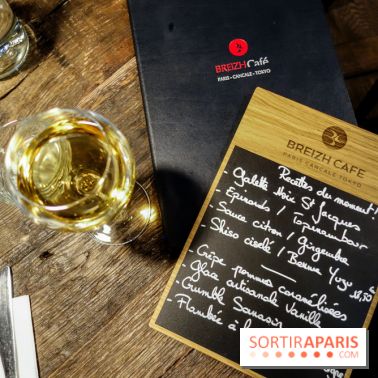 BREIZH Café
PARIS • CANCALE • TOKYO
BREIZH CAFE
PARIS CANCALE TOKYO
Recettes du moment!
- Galette Noix St Jacques
- Epinards / Topinambour
- Sauce citron / Gingembre
- Shiso ciselé / Beurre Yuzu
- Crêpe pommes caramélisées
- Glace artisanale Vanille
- Crumble Sarrasin
- Flambée à l
SORTIRAPARIS
.COM